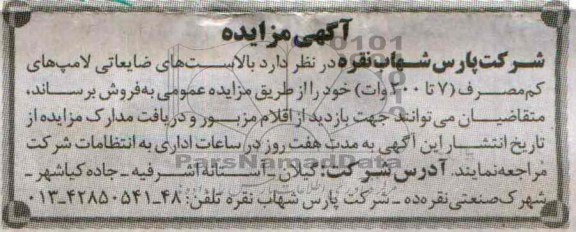 آگهی مزایده
شرکت پارس شهاب نقره در نظر دارد بالاست‌های ضایعاتی لامپ‌های
کم‌مصرف (۷ تا ۲۰۰ وات) خود را از طریق مزایده عمومی به‌فروش برساند،
متقاضیان می‌توانند جهت بازدید از اقلام مزبور و دریافت مدارک مزایده از
تاریخ انتشار این آگهی به مدت هفت روز در ساعات اداری به انتظامات شرکت
مراجعه نمایند. آدرس شرکت: گیلان ـ آستانه اشرفیه ـ جاده کیاشهر ـ
شهرک صنعتی نقره‌ده ـ شرکت پارس شهاب نقره تلفن: ۴۸ـ۴۲۸۵۰۵۴۱ـ۰۱۳
ParsNamadData